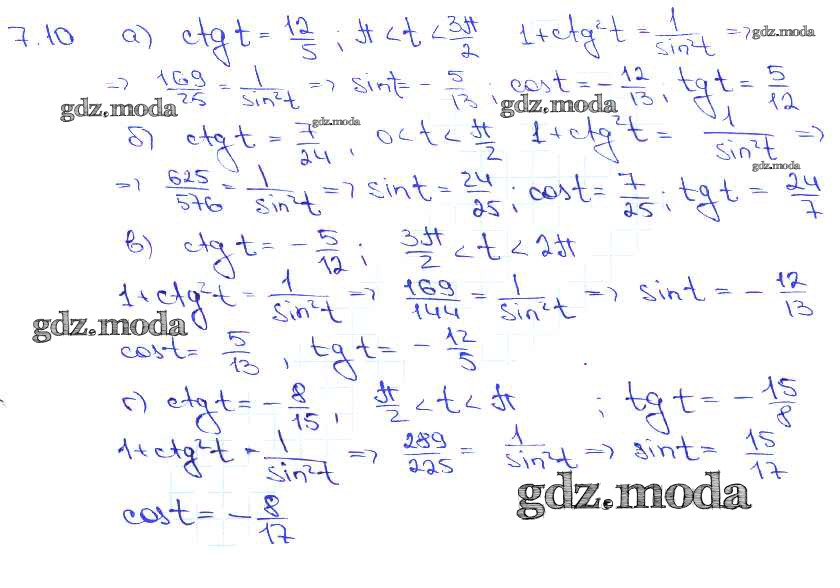 7.10 а) ctg t = 12/5 ; π < t < 3π/2 1 + ctg²t = 1/sin²t => gdz.moda
=> 169/25 = 1/sin²t => sin t = - 5/13 ; cos t = - 12/13 ; tg t = 5/12
gdz.moda gdz.moda
gdz.moda
б) ctg t = 7/24 , 0 < t < π/2 1 + ctg²t = 1/sin²t =>
gdz.moda
=> 625/576 = 1/sin²t => sin t = 24/25 ; cos t = 7/25 ; tg t = 24/7
в) ctg t = - 5/12 ; 3π/2 < t < 2π
1 + ctg²t = 1/sin²t => 169/144 = 1/sin²t => sin t = - 12/13
gdz.moda
cos t = 5/13 , tg t = - 12/5
г) ctg t = - 8/15 , π/2 < t < π ; tg t = - 15/8
1 + ctg²t = 1/sin²t => 289/225 = 1/sin²t => sin t = 15/17
gdz.moda
cos t = - 8/17